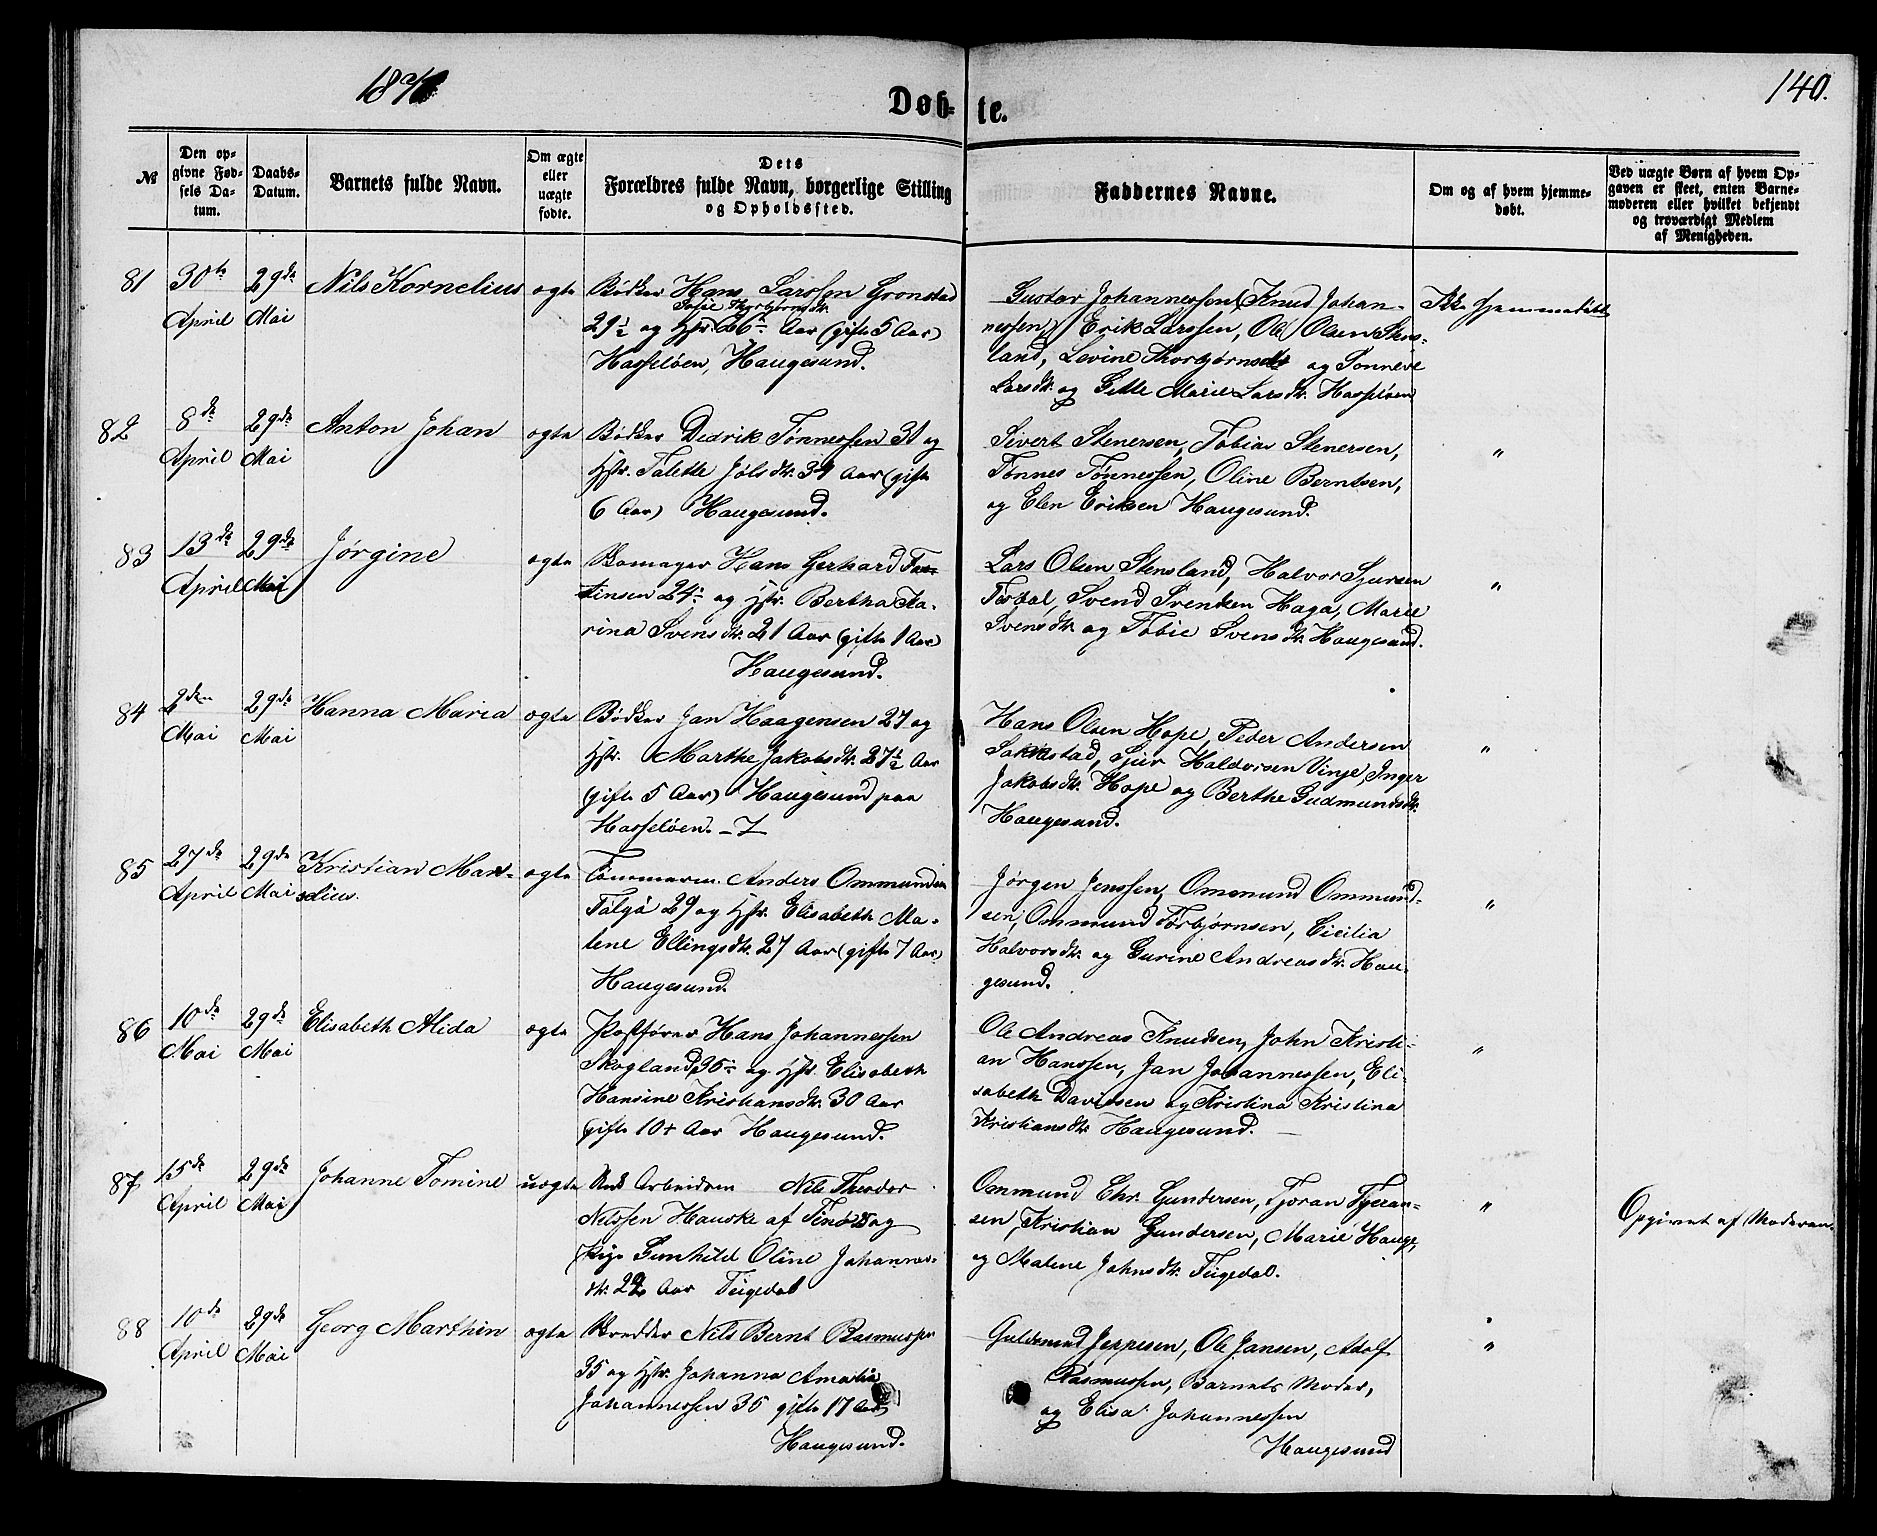 140.
Døb- te.
№
Den op-
givne Fød-
sels Da-
tum.
Daabs-
Datum.
Barnets fulde Navn.
Om ægte
eller
uægte
fødte.
Dets
Forældres fulde Navn, borgerlige Stilling
og Opholdssted.
Faddernes Navne.
Om og af hvem hjemme-
døbt.
Ved uægte Børn af hvem Op-
gaven er skeet, enten Barne-
moderen eller hvilket bekjendt
og troværdigt Medlem
af Menigheden.
81
30te
April
29de
Mai
Nils Kornelius
ægte
Bødker Hans Larssen Gronstad
29½ og Hstr. 26 Aar (gift 5 Aar)
Hasseløen, Haugesund.
Gustav Johannessen, (Knud Johan-
nessen) Erik Larssen, Ole Olsen Stens-
land, Levine Thorbjørnsdtr og Sonneve
Larsdtr. og Gitle Marie Larsdtr. Hasseløen
Ikke hjemmedøbt
82
8de
April
29de
Mai
Anton Johan
ægte
Bødker Dedrik Tønnessen 31 og
Hstr. Talette Jølsdtr. 34 Aar (gift
6 Aar) Haugesund.
Sivert Stenersen, Tobias Stenersen,
Tønnes Tønnessen, Oline Berntsen,
og Elen Eriksen Haugesund.
"
83
13de
April
29de
Mai
Jørgine
ægte
Skomager Hans Gerhard
tinsen 24 og Hstr. Bertha Ka-
rina Svensdtr. 21 Aar (gift 1 Aar)
Haugesund.
Lars Olsen Stensland, Halvor Sjursen
Svend Svendsen Haga, Marie
Svensdtr. og Tobie Svensdtr. Haugesund.
"
84
2den
Mai
29de
Mai
Hanna Maria
ægte
Bødker Jan Haagensen 27 og
Hstr. Marthe Jakobsdtr. 27½ Aar
(gift 5 Aar) Haugesund paa
Hasseløen.
Hans Olsen Hope, Peder Andersen
Sjur Haldorsen Vinje, Inger
Jakobsdtr. Hope og Berthe Gudmundsdtr.
Haugesund.
"
85
27de
April
29de
Mai
Kristian Mar-
selius.
ægte
Tømmerm. Anders Ommundsen
29 og Hstr. Elisabeth Ma-
lene Ellingsdtr. 27 Aar (gift 7 Aar)
Haugesund.
Jørgen Jenssen, Ommund Ommund-
sen, Ommund Torbjørnsen, Cicilia
Halvorsdtr. og Gurine Andreasdtr. Hau-
gesund.
"
86
10de
Mai
29de
Mai
Elisabeth Alida
ægte
Postfører Hans Johannessen
Skogland, 36 og Hstr. Elisabeth
Hansine Kristiansdtr. 30 Aar
(gift 10 Aar Haugesund.
Ole Andreas Knudsen, John Kristi-
an Hanssen, Jan Johannessen, Eli-
sabeth Davidsen og Kristina Kristina
Kristiansdtr Haugesund.
"
87
15de
April
29de
Mai
Johanne Tomine
uægte
Unk Arbeidsm Nils Theodor
Nilssen Hauske af og
Pige Gunhild Oline Johannes-
dtr. Aar
Ommund Chr. Gundersen, Tjøran Tjøran-
sen, Kristian Gundersen, Marie Hauge,
og Malene Johnsdtr.
"
Opgivet af Moderen
88
10de
April
29de
Mai
Georg Marthin
ægte
Skrædder Nils Bernt Rasmussen
35 og Hstr. Johanna Amalia
Johannessen 36 gift 17 Aar
Haugesund.
Guldsmed Jeppesen, Ole Jansen, Adolf
Rasmussen, Barnets Moder,
og Elisa Johannessen
Haugesund
"